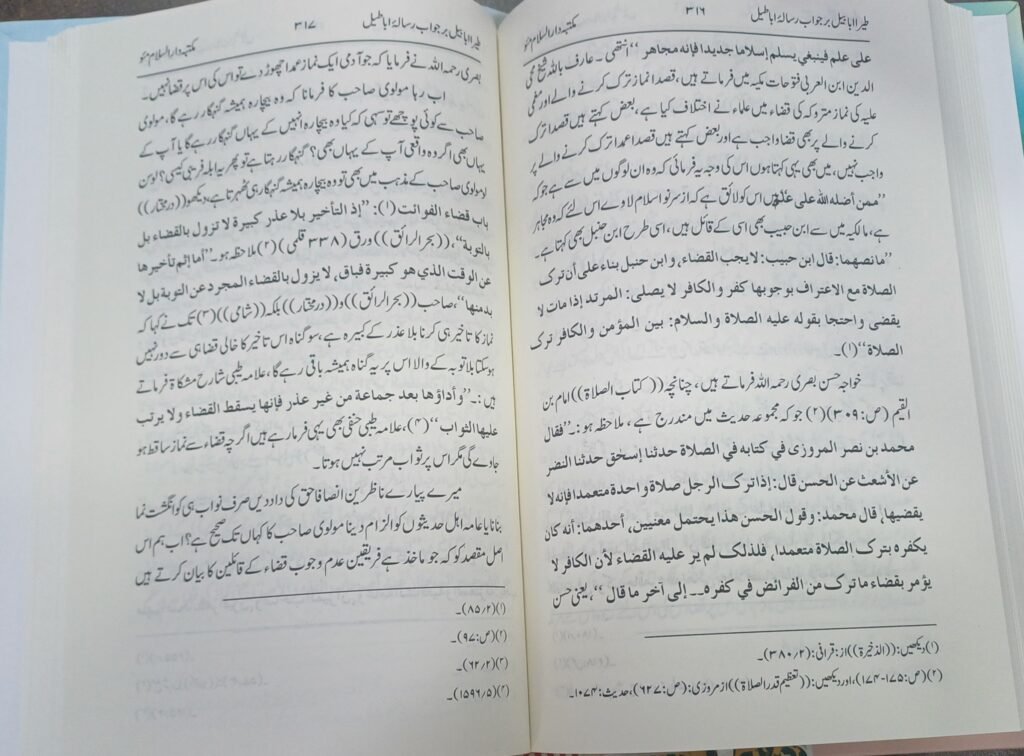 طیراً ابابیل بر جواب رسالۂ اباطیل ۳۱۶ مکتبہ دارالسلام مئو
على علم فينبغي يسلم إسلاما جديدا فإنه مجاهر ‘‘ انتھی ۔ عارف باللہ شیخ محی
الدین ابن العربی فتوحات مکیہ میں فرماتے ہیں، قصداً نماز ترک کرنے والے اور مغمی
علیہ کی نماز متروکہ کی قضاء میں علماء نے اختلاف کیا ہے، بعض کہتے ہیں قصداً ترک
کرنے والے پر بھی قضا واجب ہے اور بعض کہتے ہیں قصداً عمداً ترک کرنے والے پر
واجب نہیں، میں بھی یہی کہتا ہوں اس کی وجہ یہ فرمائی کہ وہ ان لوگوں میں سے ہے جو کہ
’’ممن أضله الله على علم‘‘ ہیں اس کو لائق ہے کہ از سر نو اسلام لاوے اس لئے کہ وہ مجاہر
ہے، مالکیہ میں سے ابن حبیب بھی اسی کے قائل ہیں، اسی طرح ابن حنبل بھی کہتا ہے۔
’’ما نصهما: قال ابن حبيب: لا يجب القضاء، وابن حنبل بناء على أن ترك
الصلاة مع الاعتراف بوجوبها كفر والكافر لا يصلى: المرتد إذا مات لا
يقضى واحتجا بقوله عليه الصلاة والسلام: بين المؤمن والكافر ترك
الصلاة‘‘(۱)۔
خواجہ حسن بصری رحمہ اللہ فرماتے ہیں، چنانچہ ((کتاب الصلاۃ)) امام بن
القیم (ص:۳۰۹)(۲) جو کہ مجموعہ حدیث میں مندرج ہے، ملاحظہ ہو:۔ ’’فقال
محمد بن نصر المروزى في كتابه في الصلاة حدثنا إسحق حدثنا النضر
عن الأشعث عن الحسن قال: إذا ترك الرجل صلاة واحدة متعمدا فإنه لا
يقضيها، قال محمد: وقول الحسن هذا يحتمل معنيين، أحدهما: أنه كان
يكفره بترك الصلاة متعمدا، فلذلك لم ير عليه القضاء لأن الكافر لا
يؤمر بقضاء ما ترك من الفرائض في كفره۔۔ إلى آخر ما قال ‘‘، یعنی حسن
(۱) دیکھیں: ((الذخیرۃ)) از: قرافی: (۳۸۰/۲)۔
(۲) (ص:۱۷۵-۱۷۴)، اور دیکھیں: ((تعظیم قدر الصلاۃ)) از مروزی: (ص:۶۲۷)، حدیث:۱۰۷۴۔
طیراً ابابیل بر جواب رسالۂ اباطیل ۳۱۷ مکتبہ دارالسلام مئو
بصری رحمہ اللہ نے فرمایا کہ جو آدمی ایک نماز عمداً چھوڑ دے تو اس کی اس پر قضا نہیں۔
اب رہا مولوی صاحب کا فرمانا کہ وہ بیچارہ ہمیشہ گنہگار رہے گا، مولوی
صاحب سے کوئی پوچھے تو سہی کہ کیا وہ بیچارہ انہیں کے یہاں گنہگار رہے گا یا آپ کے
یہاں بھی اگر وہ واقعی آپ کے یہاں بھی؟ گنہگار رہتا ہے تو پھر یہ ابلہ فریبی کیسی؟ لو سن
لو مولوی صاحب کے مذہب میں بھی تو وہ بیچارہ ہمیشہ گنہگار ہی ٹھہرتا ہے، دیکھو ((در مختار))
باب قضاء الفوائت(۱): ’’إذ التأخير بلا عذر كبيرة لا تزول بالقضاء بل
بالتوبة‘‘، ((بحر الرائق)) ورق (۳۳۸ قلمی)(۲) ملاحظہ ہو۔ ’’أما إثم تأخيرها
عن الوقت الذي هو كبيرة فباق، لا يزول بالقضاء المجرد عن التوبة بل لا
بد منها‘‘، صاحب ((بحر الرائق)) و ((در مختار)) بلکہ ((شامی))(۳) تک نے کہا کہ
نماز کا تاخیر ہی کرنا بلا عذر کے کبیرہ ہے، سو گناہ اس تاخیر کا خالی قضا ہی سے دور نہیں
ہو سکتا بلا توبہ کے والا اس پر یہ گناہ ہمیشہ باقی رہے گا، علامہ طیبی شارح مشکاۃ فرماتے
ہیں:۔ ’’وأداؤها بعد جماعة من غير عذر فإنها يسقط القضاء ولا يرتب
عليها الثواب‘‘ (۴)، علامہ طیبی حنفی بھی یہی فرما رہے ہیں اگرچہ قضاء سے نماز ساقط ہو
جاوے گی مگر اس پر ثواب مرتب نہیں ہوتا۔
میرے پیارے ناظرین انصافاً حق کی داد دیں صرف نواب ہی کو انگشت نما
بنانا یا عامہ اہل حدیثوں کو الزام دینا مولوی صاحب کا کہاں تک صحیح ہے؟ اب ہم اس
اصل مقصد کو کہ جو ماخذ ہے فریقین عدم و وجوب قضاء کے قائلین کا بیان کرتے ہیں
(۱) (۸۵/۲)۔
(۲) (ص:۹۷)۔
(۳) (۶۲/۲)۔
(۴) (۱۵۹۶/۵)۔